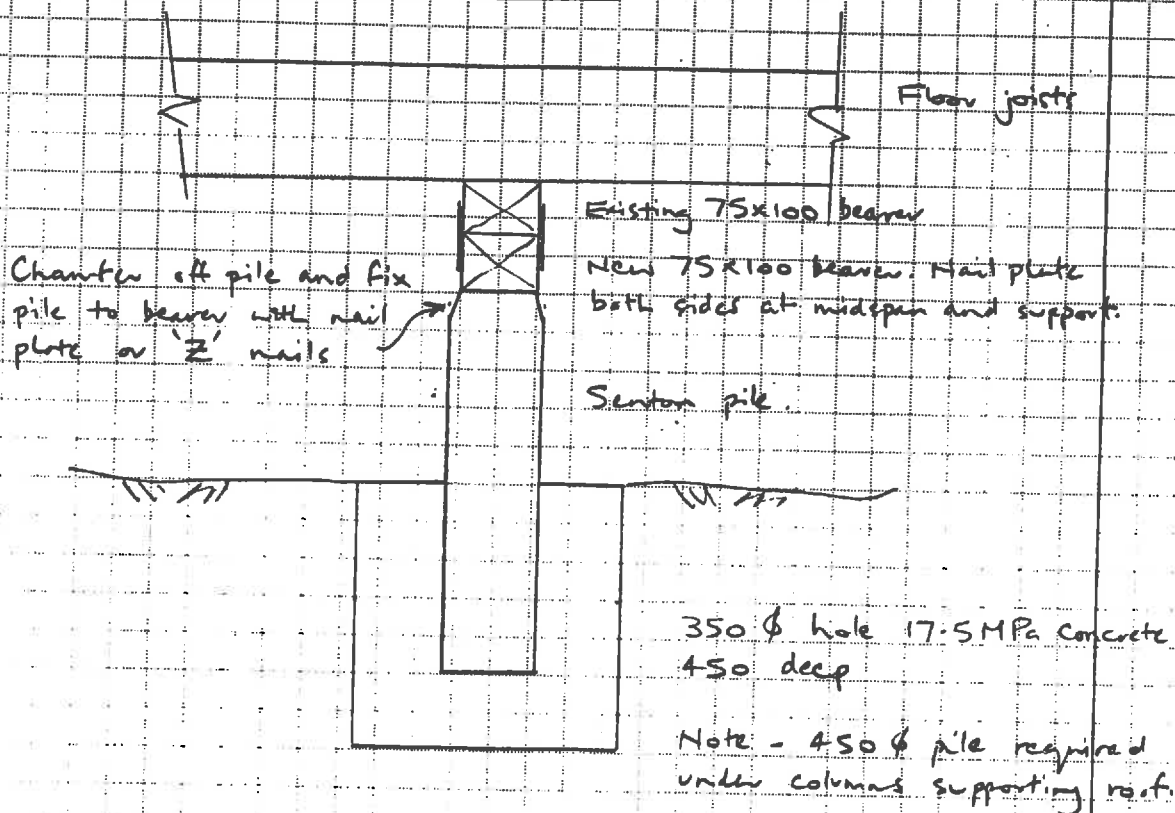 Floor joists
Existing 75x100 bearer
New 75x100 bearer. Nail plate
both sides at midspan and support.
Chamfer off pile and fix
pile to bearer with nail
plate or 'Z' nails
pile.
350 ϕ hole 17.5 MPa Concrete
450 deep
Note - 450 ϕ pile required
under columns supporting roof.